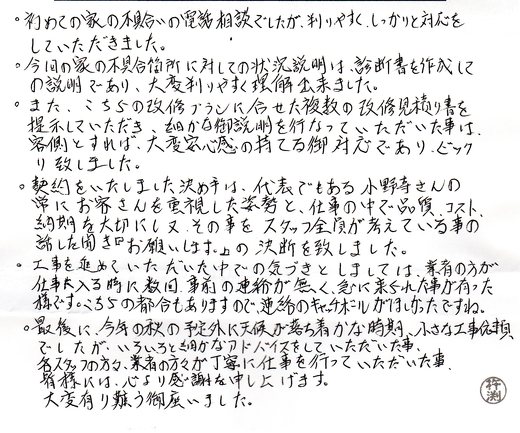 。初めての家の不具合の電話相談でしたが、判りやすく、しっかりと対応を
していただきました。
。今回の家の不具合箇所に対しての状況説明は、診断書を作成して
の説明であり、大変判りやすく理解出来ました。
。また、こちらの改修プランに合せた複数の改修見積り書を
提示していただき、細かな御説明を行なっていただいた事は、
客側とすれば、大変安心感の持てる御対応であり、ビック
リ致しました。
。契約をいたしました決め手は、代表でもある小野寺さんの
常にお客さんを重視した姿勢と、仕事の中で品質、コスト、
納期を大切にし又その事をスタッフ全員が考えている事の
話した聞き『お願いします。』の決断を致しました。
。工事を進めていただいた中での気づきとしましては、業者の方が
仕事に入る時に数回、事前の連絡が無く、急に来られた事が有った
様です。こちらの都合もありますので、連絡のキャッチボールがほしかったですね。
。最後に、今年の秋の予定外に天候が落ち着かな時期、小さな工事依頼、
でしたが、いろいろと細かなアドバイスをしていただいた事、
各スタッフの方々、業者の方々が丁寧に仕事を行っていただいた事、
皆様には、心より感謝を申し上げます。
大変有り難う御座いました。